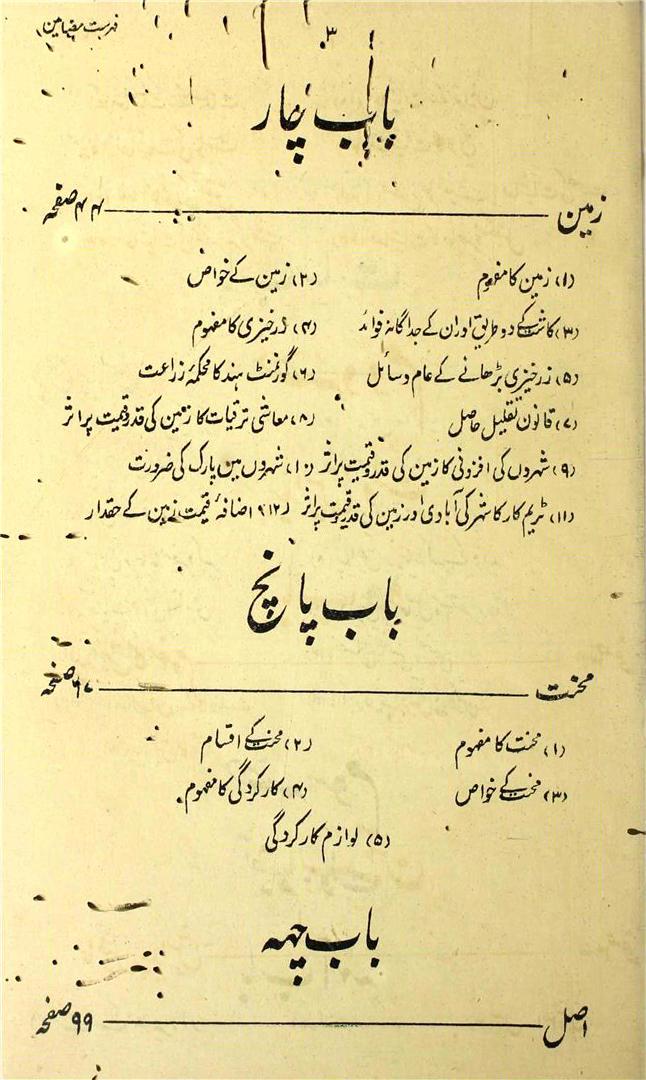 فہرست مضامین
۳
باب چار
زمین ۴۴ صفحہ
(۱) زمین کا مفہوم (۲) زمین کے خواص
(۳) کاشت کے دو طریق اور ان کے جداگانہ فوائد (۴) زرخیزی کا مفہوم
(۵) زرخیزی بڑھانے کے عام وسائل (۶) گورنمنٹ ہند کا محکمۂ زراعت
(۷) قانون تقلیل حاصل (۸) معاشی ترقیات کا زمین کی قدر و قیمت پر اثر
(۹) شہروں کی افزونی کا زمین کی قدر و قیمت پر اثر (۱۰) شہروں میں پارک کی ضرورت
(۱۱) ٹریم کار کا شہر کی آبادی اور زمین کی قدر و قیمت پر اثر (۱۲) اضافۂ قیمت زمین کے حقدار
باب پانچ
محنت ۶۷ صفحہ
(۱) محنت کا مفہوم (۲) محنت کے اقسام
(۳) محنت کے خواص (۴) کارکردگی کا مفہوم
(۵) لوازم کارکردگی
باب چہہ
اصل ۹۹ صفحہ